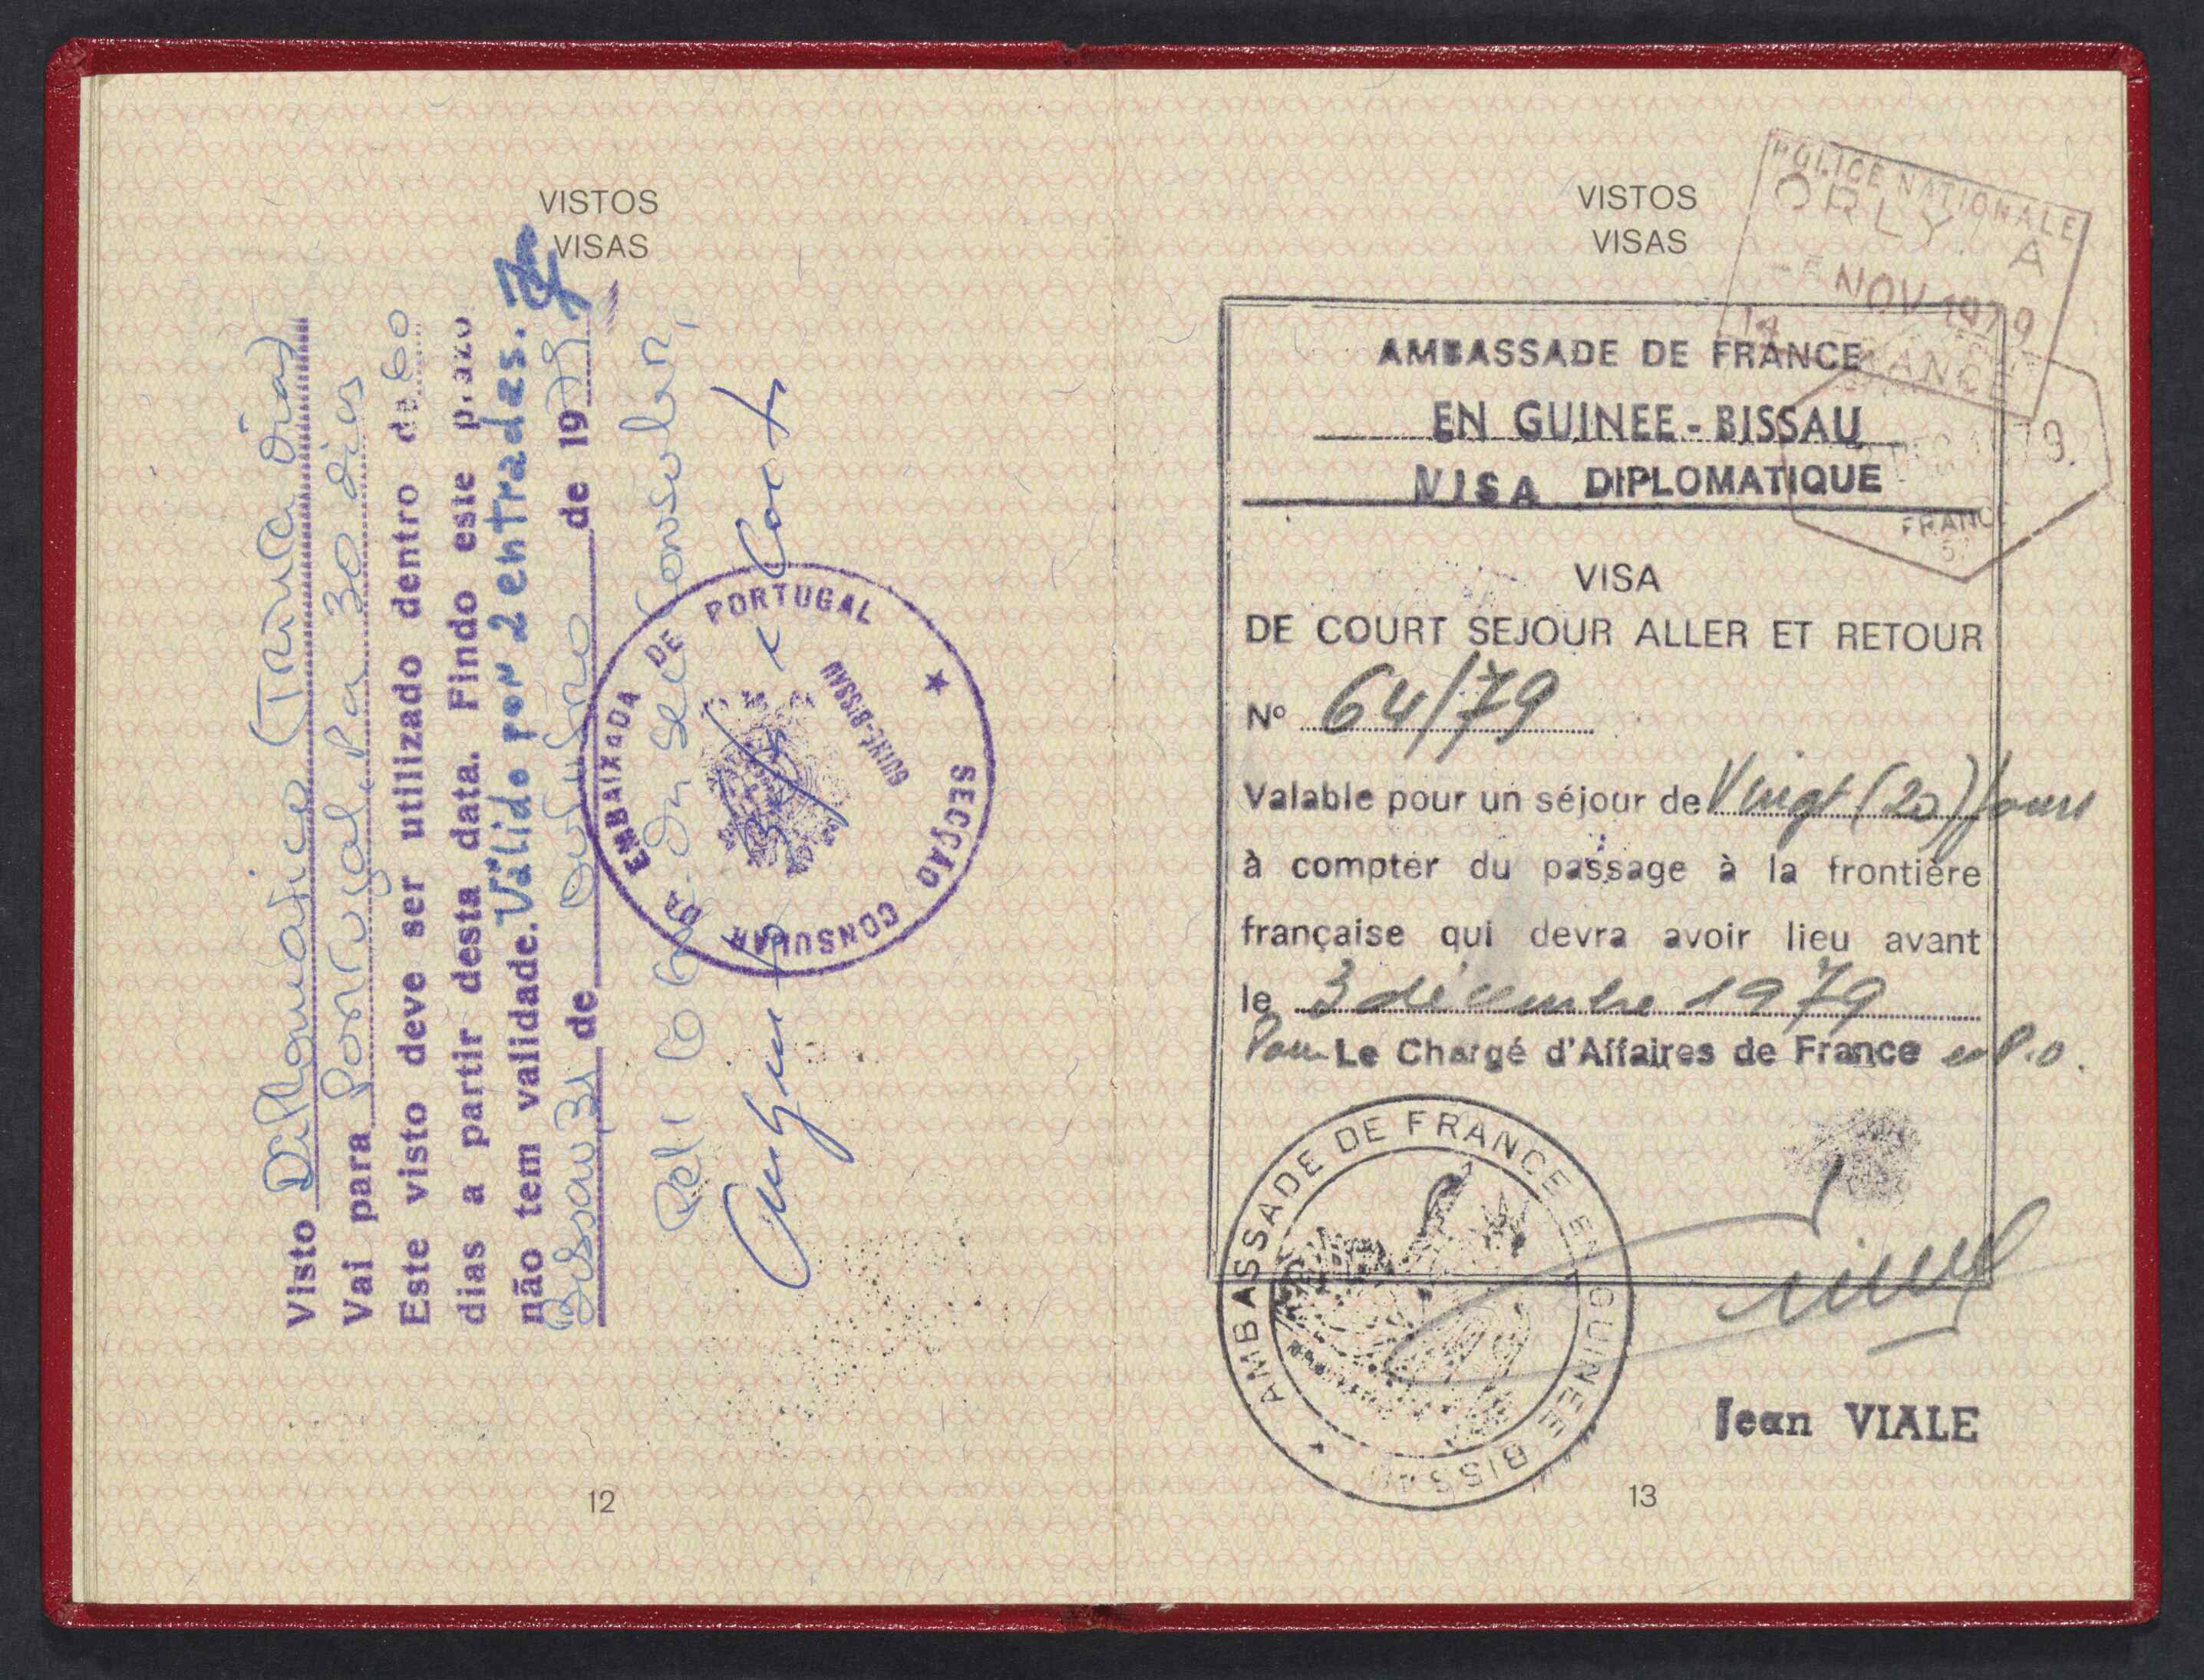 VISTOS
VISAS
Visto Diplomático (Trinta dias)
Vai para Portugal, Pa 30 dias
Este visto deve ser utilizado dentro de 60
dias a partir desta data. Findo este prazo
não tem validade. Válido por 2 entradas.
Bissau, 31 de Outubro de 1979
EMBAIXADA DE PORTUGAL
GUINÉ-BISSAU
SECÇÃO CONSULAR
12
VISTOS
VISAS
POLICE NATIONALE
ORLY A
NOV 1979
FRANCE
FRANCE
AMBASSADE DE FRANCE
EN GUINEE-BISSAU
VISA DIPLOMATIQUE
VISA
DE COURT SEJOUR ALLER ET RETOUR
Nº 64/79
Valable pour un séjour de Vingt (20) jours
à compter du passage à la frontière
française qui devra avoir lieu avant
le 3 décembre 1979
Pour Le Chargé d'Affaires de France
AMBASSADE DE FRANCE EN GUINEE BISSAU
Jean VIALE
13